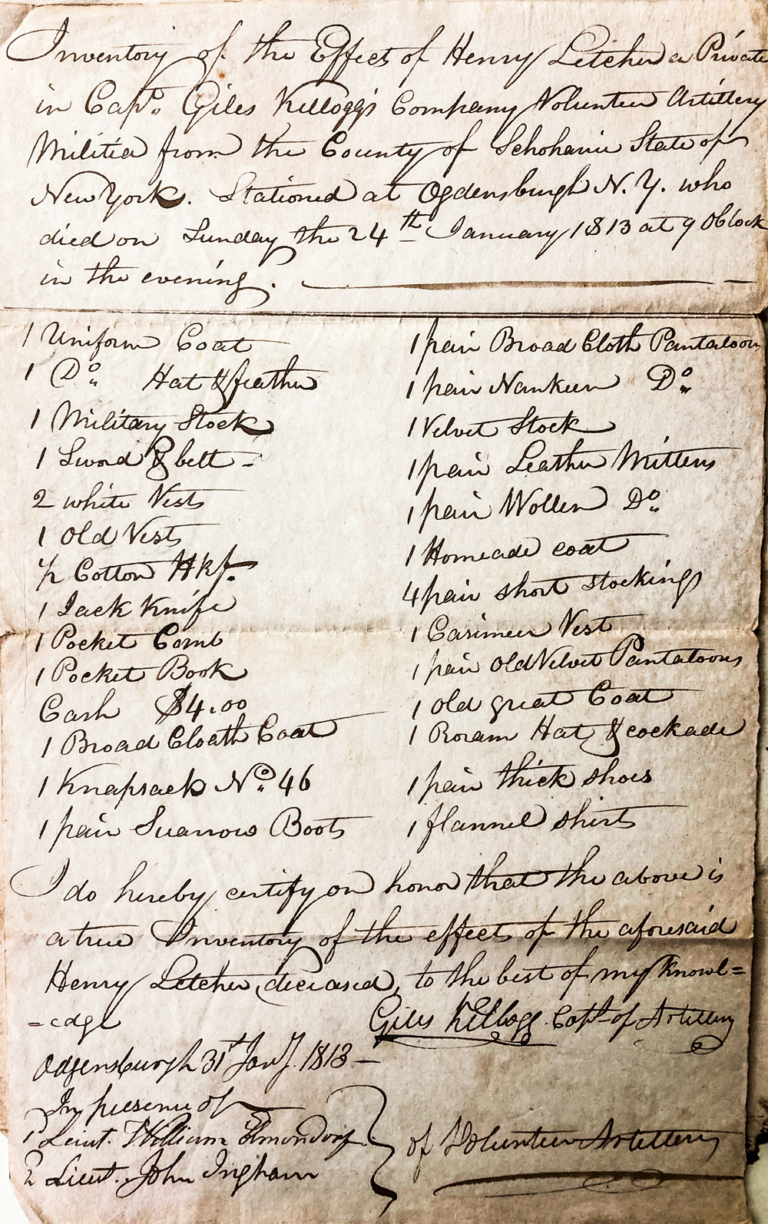 Inventory of the Effect of Henry Letcher a Private
in Capt. Giles Kellogg's Company Volunteer Artillery
Militia from the County of Schoharie State of
New York. Stationed at Ogdensburgh N.Y. who
died on Sunday the 24th January 1813 at 9 Oblock
in the evening.
1 Uniform Coat
1 Do Hat & feather
1 Military Stock
1 Sword & belt
2 white Vests
1 Old Vest
2 Cotton Hkf.
1 Jack Knife
1 Pocket Comb
1 Pocket Book
Cash $4.00
1 Broad Cloath Coat
1 Knapsack No. 46
1 pair Suarrow Boots
1 pair Broad Cloth Pantaloons
1 pair Nankeen Do
1 Velvet Stock
1 pair Leather Mittens
1 pair Wollen Do
1 Homeade coat
4 pair short stockings
1 Casimeer Vest
1 pair Old Velvet Pantaloons
1 old great Coat
1 Roram Hat & cockade
1 pair thick shoes
1 flannel shirt
I do hereby certify on honor that the above is
a true Inventory of the effect of the aforesaid
Henry Letcher, deceased, to the best of my Knowl=
=edge Giles Kellogg Capt. of Artillery
Odgensburgh 31st Jany. 1813
In presence of
1 Lieut. William Elmondorf
2 Lieut. John Ingham
of Volunteer Artillery